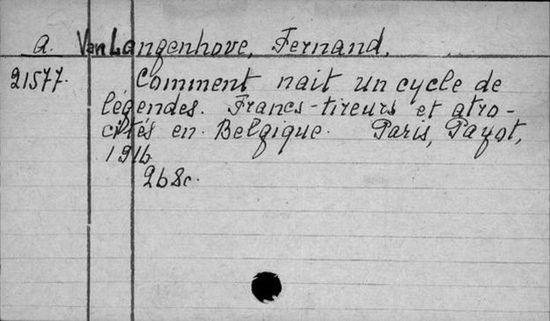 a. Van Langenhove, Fernand.
21577. Comment nait un cycle de
légendes. Francs-tireurs et atro-
cités en Belgique. Paris, Payot,
1916
268c.